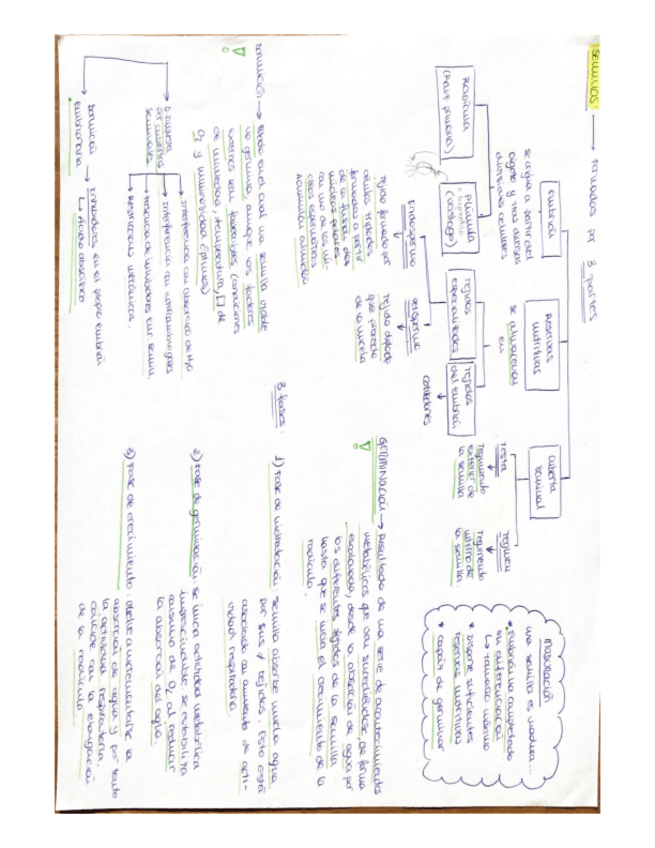 SEMILLAS → formadas por 3 partes
Embrión
se origina a partir del
cigoto y tras diversas
divisiones celulares
Radícula
(Raíz primaria)
Plúmula
(vástago)
Reservas
nutritivas
se almacenan
en
Tejidos
especializados
Tejidos
del embrión
cotiledones
Endospermo
Tejido formado por
células triploides
formadas a partir
de la fusión dos
núcleos polares
con uno de los nú-
cleos espermáticos
Acumulan almidón
perispermo
Tejido diploide
que procede
de la nucela
cubierta
seminal
Testa
Tegumento
exterior de
la semilla
Tegmen
Tegumento
interno de
la semilla
Maduración
una semilla es madura...
* Embrión ha completado
su diferenciación
↳ tamaño máximo
* Dispone suficientes
reservas nutritivas
* capaz de germinar
DORMICIÓN → Estado en el cual una semilla viable
no germina, aunque los factores
externos sean favorables (condiciones
de humedad, temperatura, [] de
O₂ y luminosidad óptimas)
Dormancia
por cubiertas
seminales
Interferencia con absorción de H₂O
Interferencia con intercambio gases
Presencia de inhibidores en semilla.
Restricciones mecánicas.
Dormición
embrionaria
→ Inhibidores en el propio embrión
↳ Ácido abscísico
GERMINACIÓN → Resultado de una serie de acontecimientos
metabólicos que van sucediéndose de forma
escalonada, desde la absorción de agua por
los diferentes tejidos de la semilla
hasta que se inicia el crecimiento de la
radícula.
3 fases:
1) Fase de hidratación: semilla absorbe mucha agua
por sus ≠ tejidos. Esto está
asociado con aumento de acti-
vidad respiratoria.
2) Fase de germinación: se inicia actividad metabólica
imprescindible. se estabiliza
consumo de O₂ al reducir
la absorción del agua.
3) Fase de crecimiento: vuelve a incrementarse la
absorción de agua y por tanto
la actividad respiratoria.
coincide con la elongación
de la radícula.